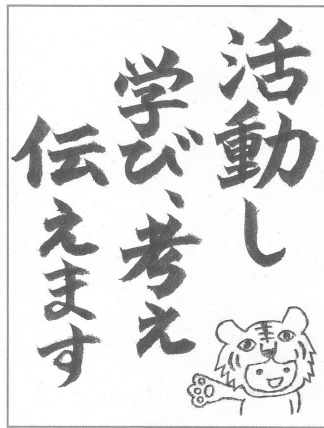 活動し
学び、考え
伝えます